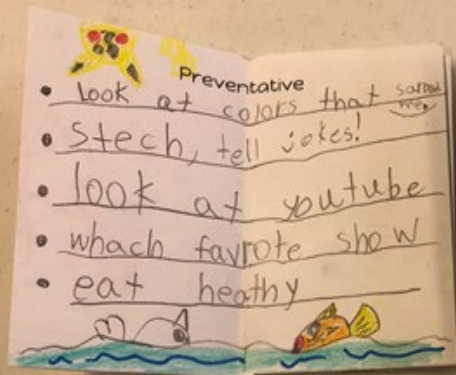 Preventative
look at colors that
me.
stech, tell jokes!
look at youtube
whach favrote show
eat heathy